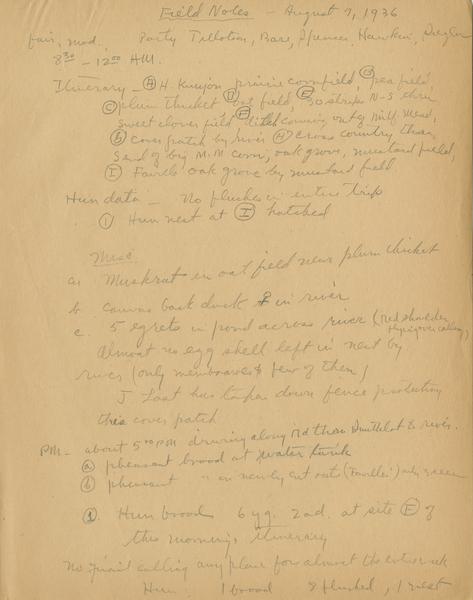 Field Notes - August 7, 1936
fair, mod. Party Tillotson, Bare, Spencer, Hawkins,
8 30 - 12 00 AM.
Itinerary - (A) H. prairie cornfield, pea field
(C) plum thicket oat field, (E) 50 strips N-S thru
sweet clover field (F) ditch coming out of Mill. Mead,
(G) Cover patch by river (H) Cross country thru
S end of big M.M corn, oak grove, mustard field,
(I) Faville oak grove by mustard field
Hun data - No flushes in entire trip
(1) Hun nest at (I) hatched
Misc
a. Muskrat in oat field near plum thicket
b canvas back duck ♀ in river
c. 5 egrets in pond across river (red shoulder flying over calling)
Almost no egg shell left in nest by
river (only membranes & few of them)
J Last has taken down fence protecting
this cover patch
PM - about 5 00 PM driving along rd thru & river.
(a) pheasant brood at water tank
(b) pheasant " on newly cut oats (Faville) only seen
(1) Hun brood 6 yg. 2 ad. at site (E) of
this mornings itinerary
No quail calling any place for almost the entire wk
Hun 1 brood 8 flushed, 1 nest